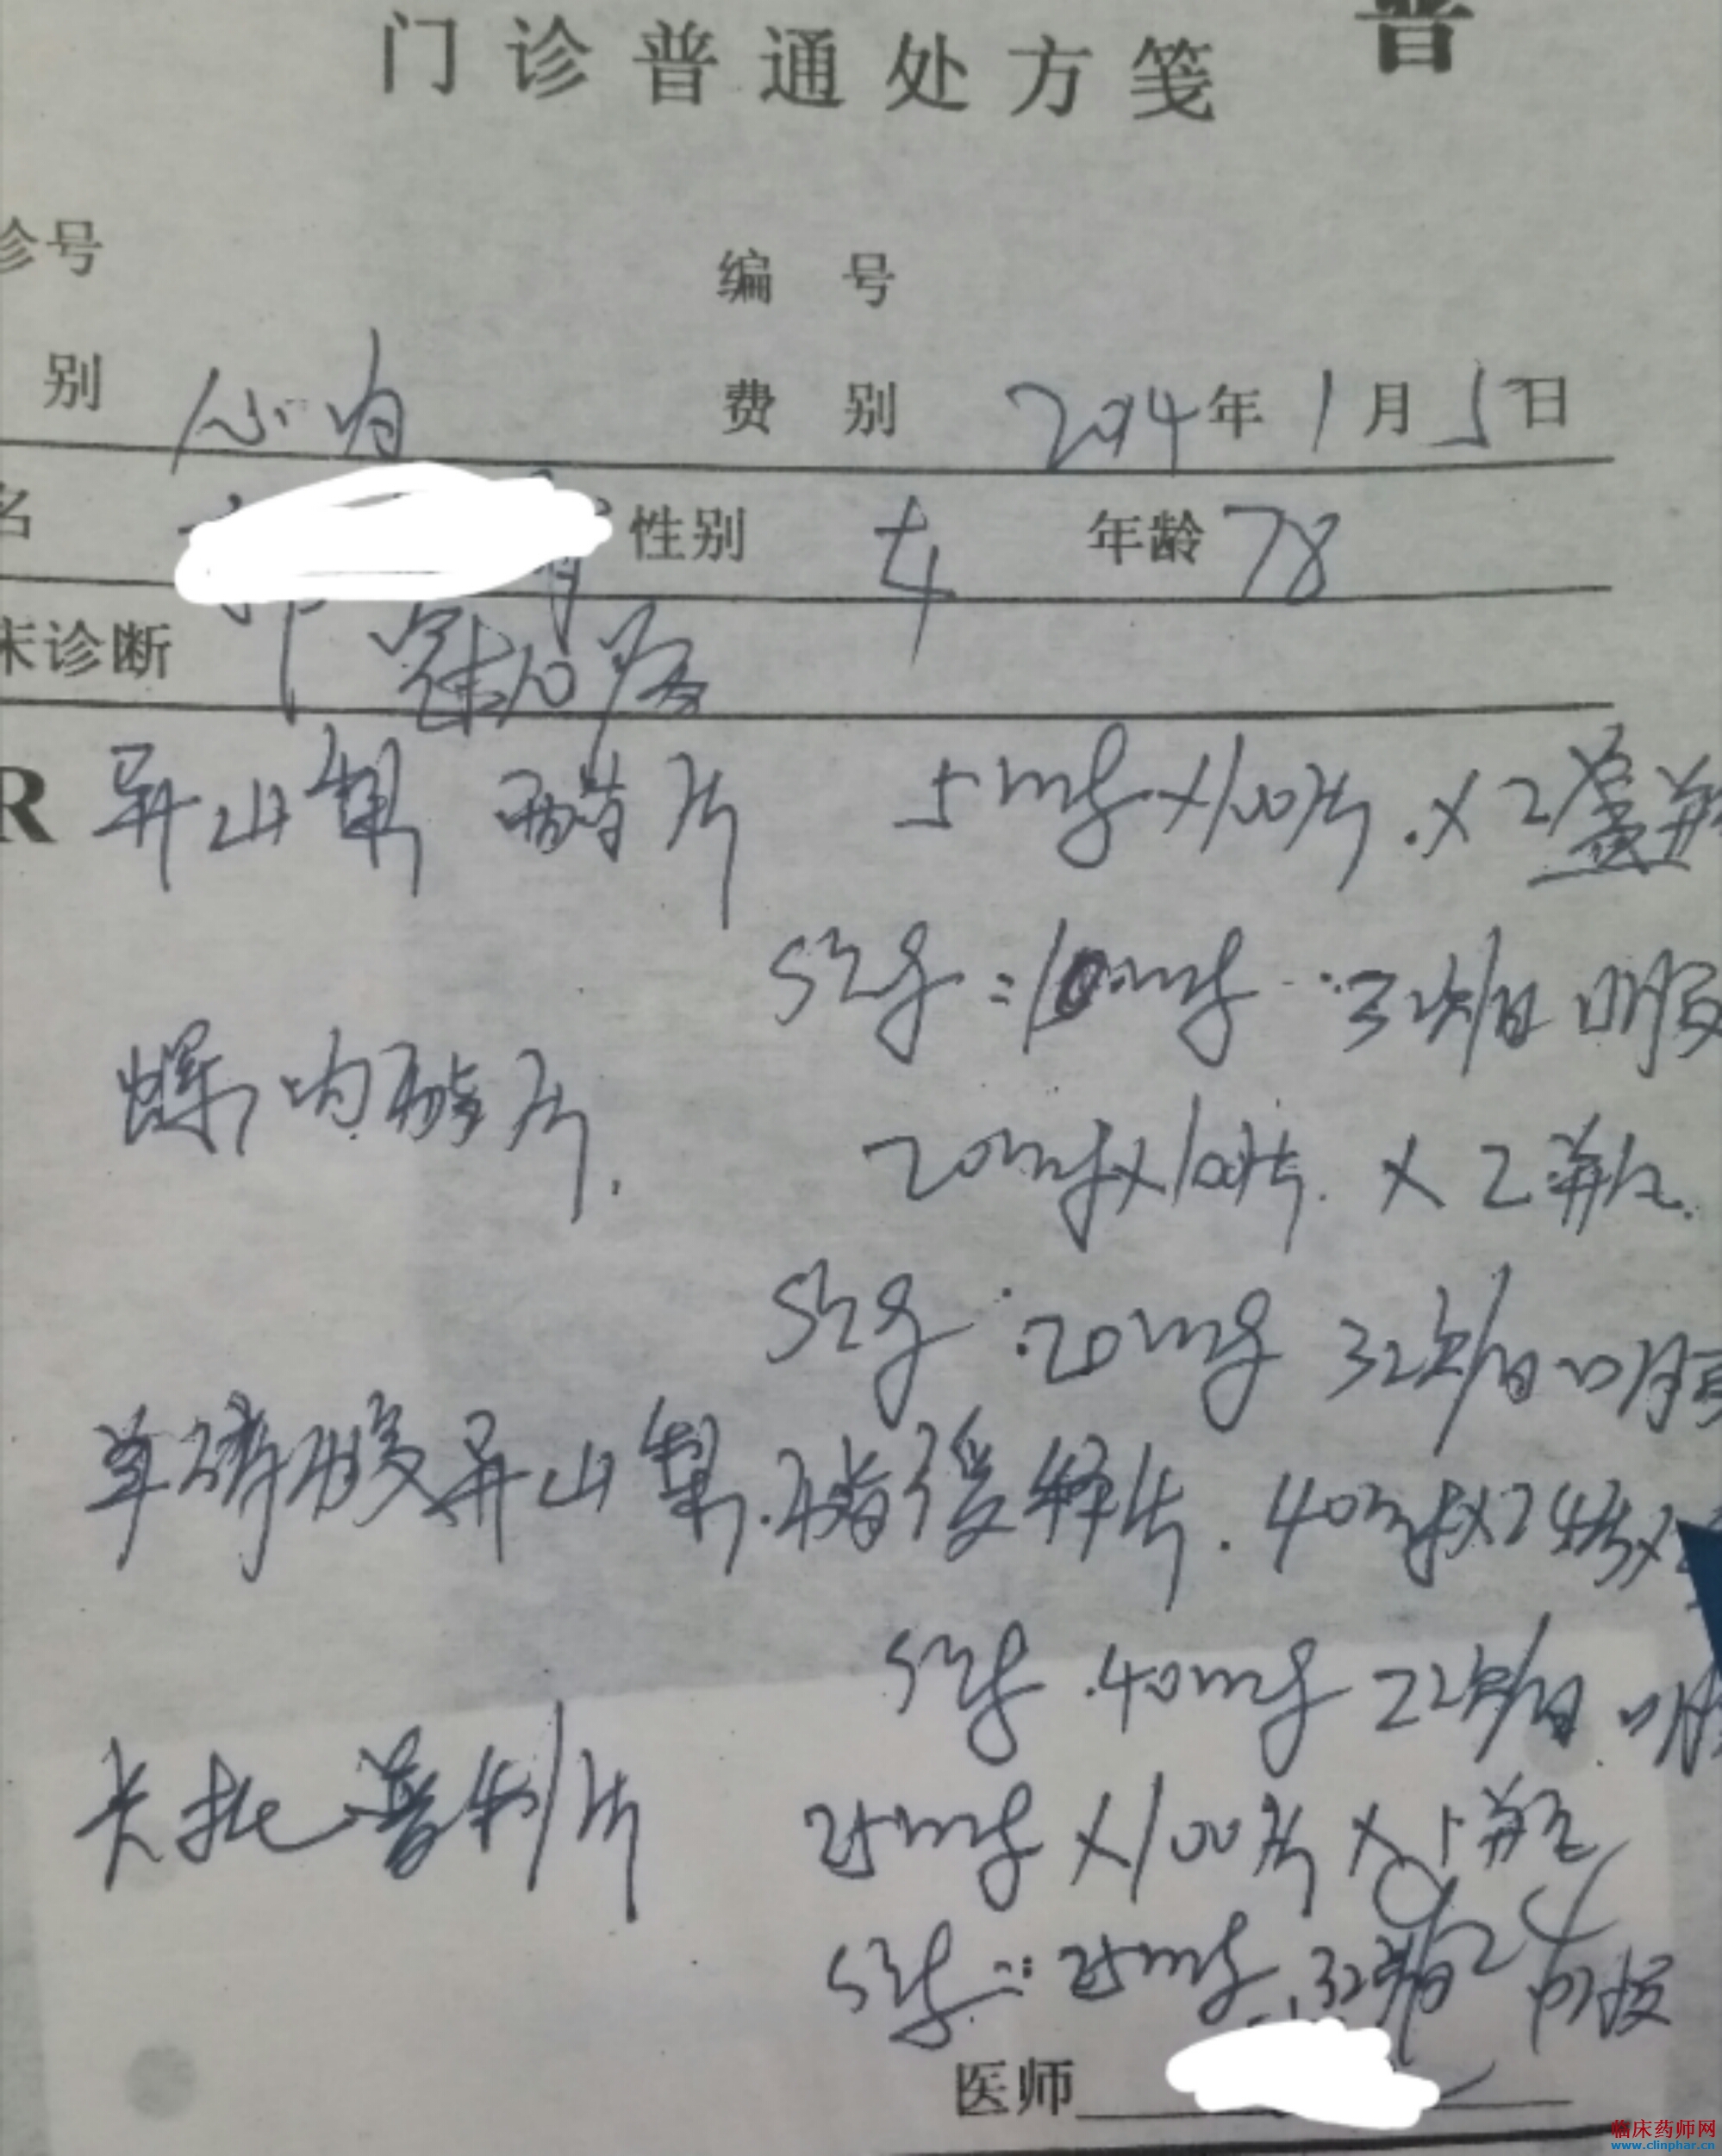 门诊普通处方笺 普
诊号 编号
别 心内 费别 2014年1月5日
名 性别 女 年龄 78
床诊断 冠心病
R 异山梨酯片 5mg×100片.×2盒瓶
Sig:10mg 3次/日 口服
螺内酯片. 20mg×100片.×2瓶.
Sig .20mg 3次/日 口服
单硝酸异山梨.酯缓释片. 40mg×24片×
Sig .40mg 2次/日 口服
卡托普利片 25mg×100片× 瓶
Sig: 25mg 3次/日 口服
医师
临床药师网
www.clinphar.cn